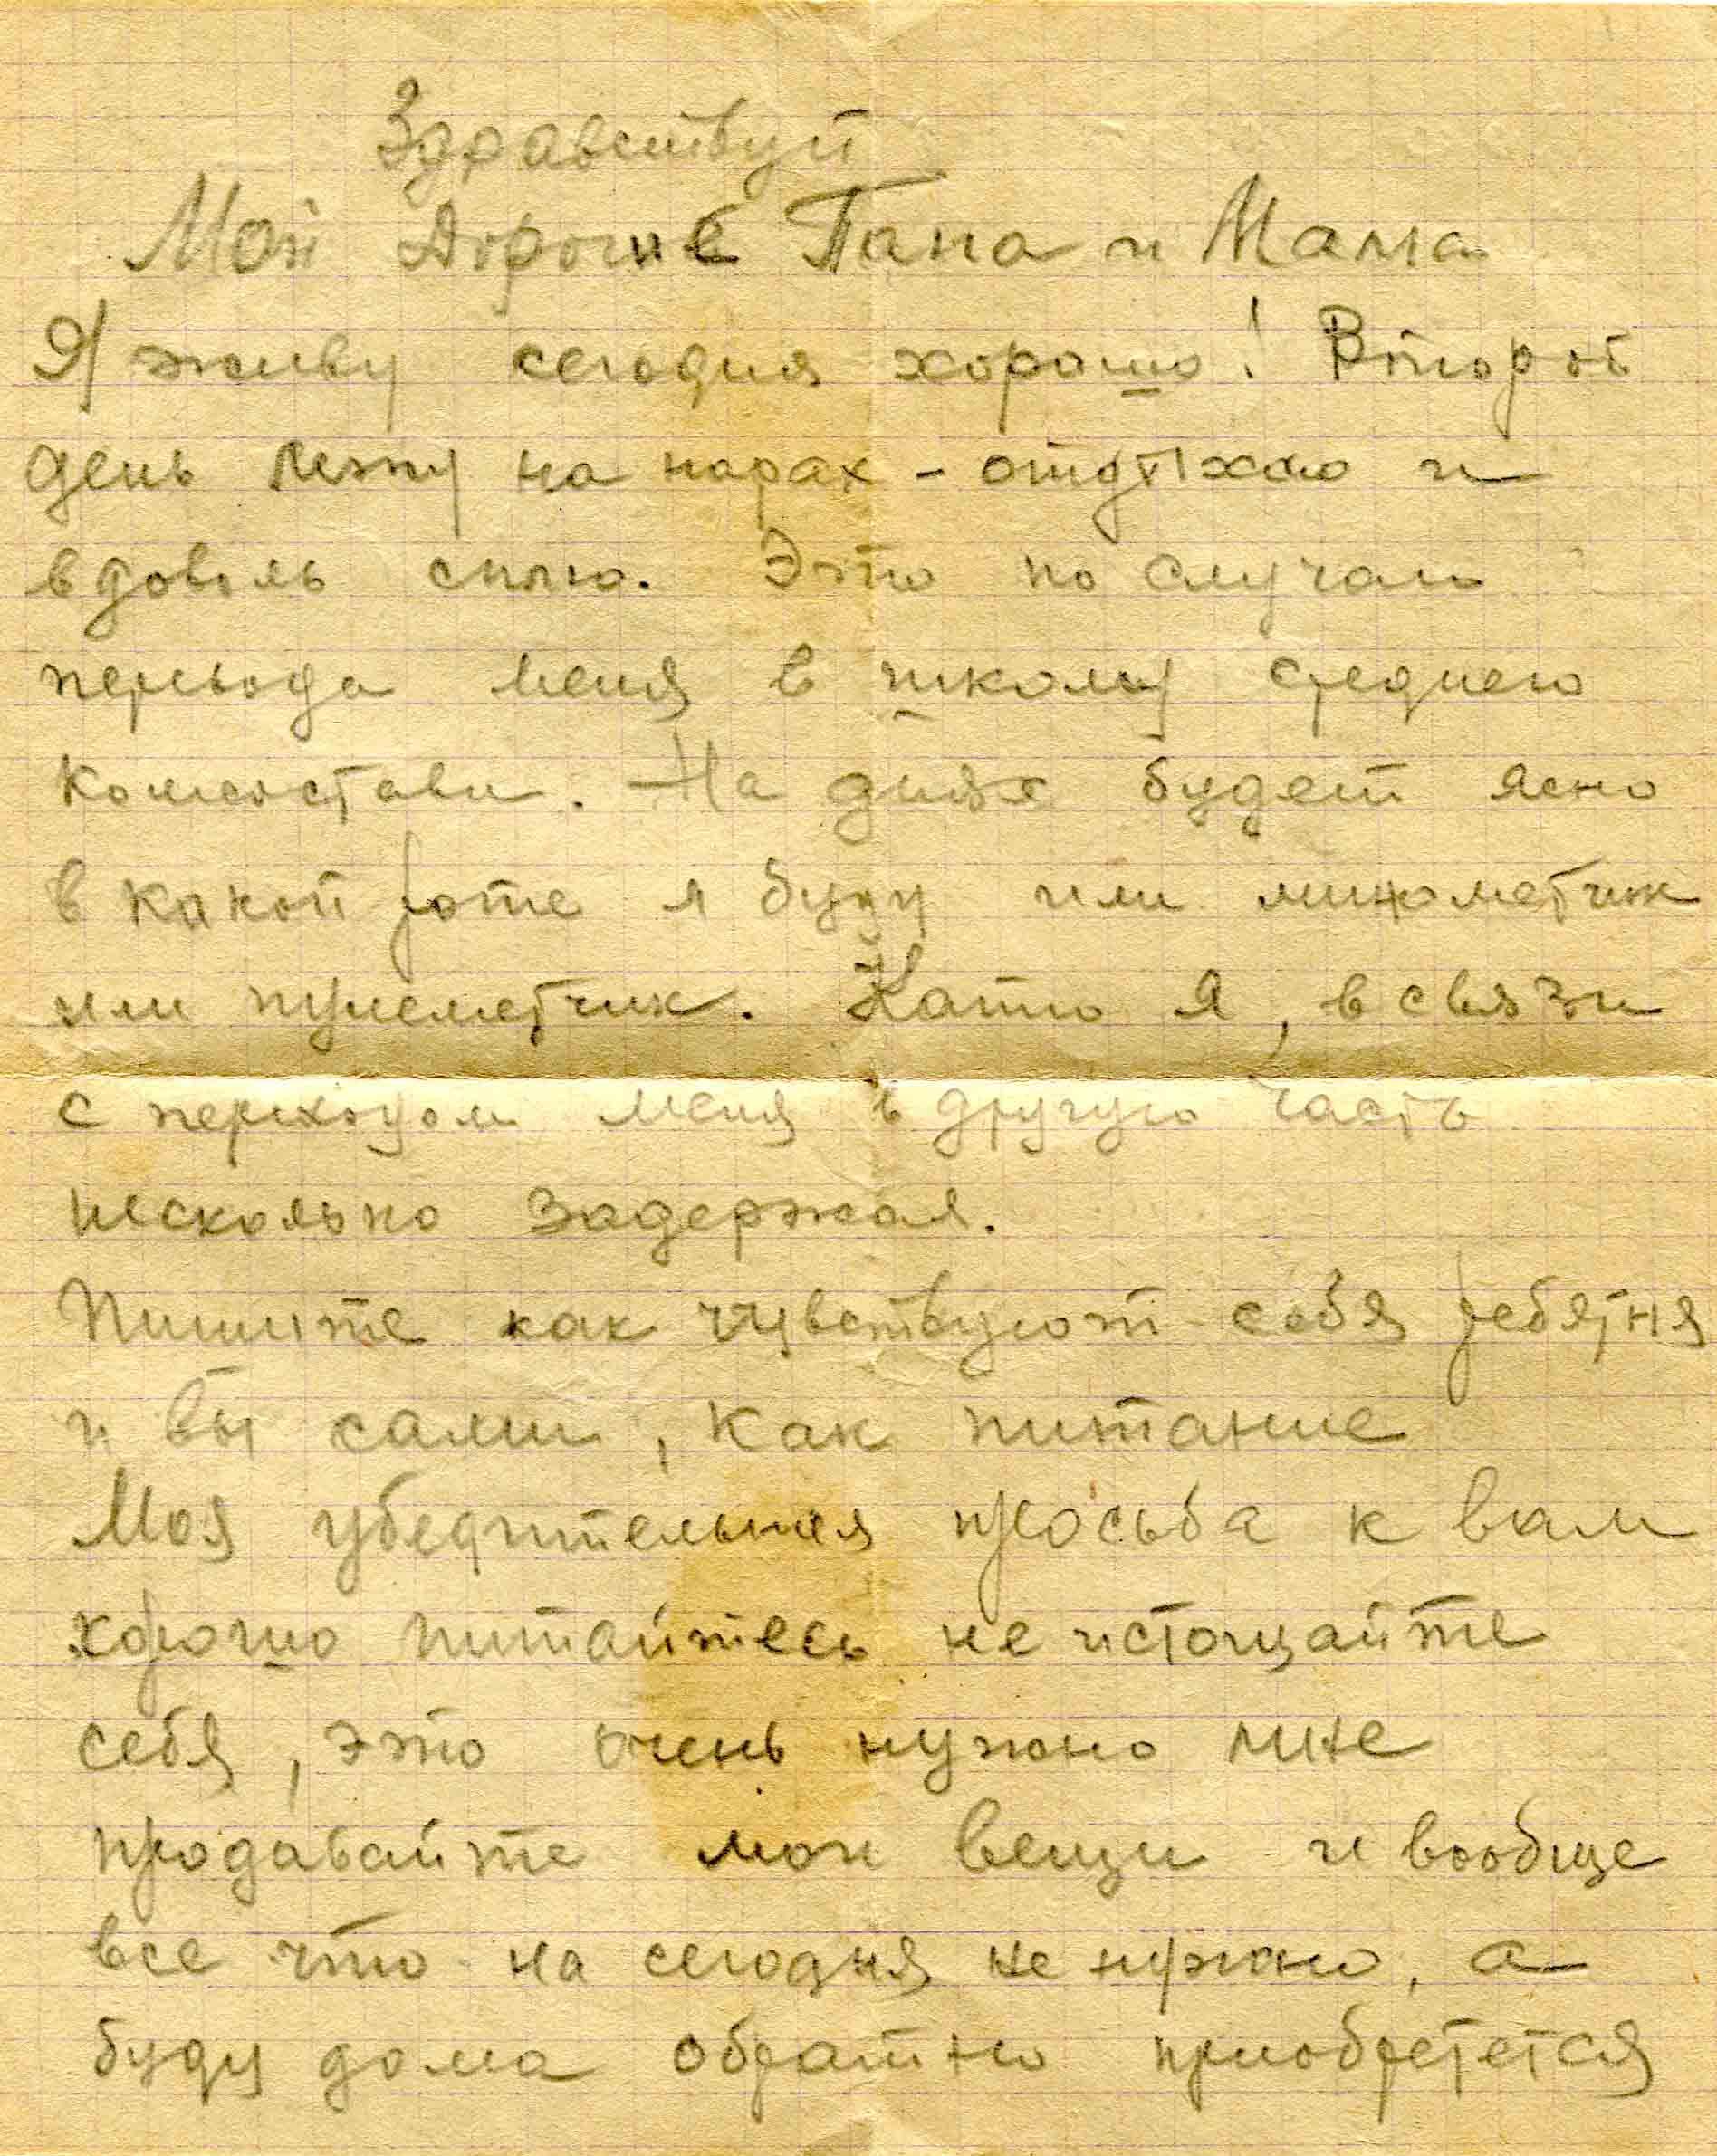 Здравствуй
Мои Дорогие Папа и Мама
Я живу сегодня хорошо! Второй
день лежу на нарах - отдыхаю и
вдоволь сплю. Это по случаю
перевода меня в школу среднего
комсостава. На днях будет ясно
в какой роте я буду или минометчик
или пулеметчик. Катю я, в связи
с переходом меня в другую часть
несколько задержал.
Пишите как чувствуют себя ребятня
и вы сами, как питание
Моя убедительная просьба к вам
хорошо питайтесь не истощайте
себя, это очень нужно мне
продавайте мои вещи и вообще
все что на сегодня не нужно, а
буду дома обратно приобретется